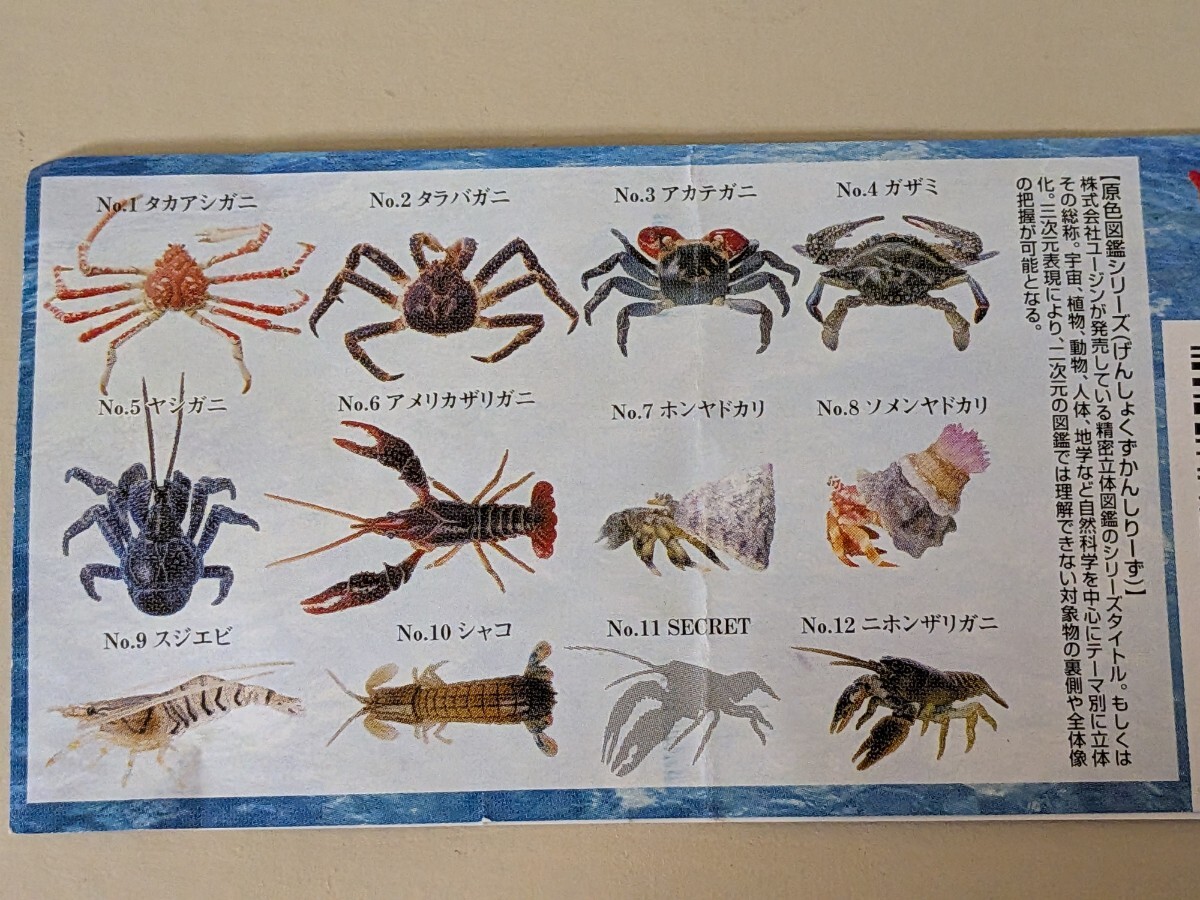 No.1 タカアシガニ
No.2 タラバガニ
No.3 アカテガニ
No.4 ガザミ
No.5 ヤシガニ
No.6 アメリカザリガニ
No.7 ホンヤドカリ
No.8 ソメンヤドカリ
No.9 スジエビ
No.10 シャコ
No.11 SECRET
No.12 ニホンザリガニ
【原色図鑑シリーズ(げんしょくずかんしりーず)】
株式会社ユージンが発売している精密立体図鑑のシリーズタイトル。もしくは
その総称。宇宙、植物、動物、人体、地学など自然科学を中心にテーマ別に立体
化。三次元表現により、二次元の図鑑では理解できない対象物の裏側や全体像
の把握が可能となる。